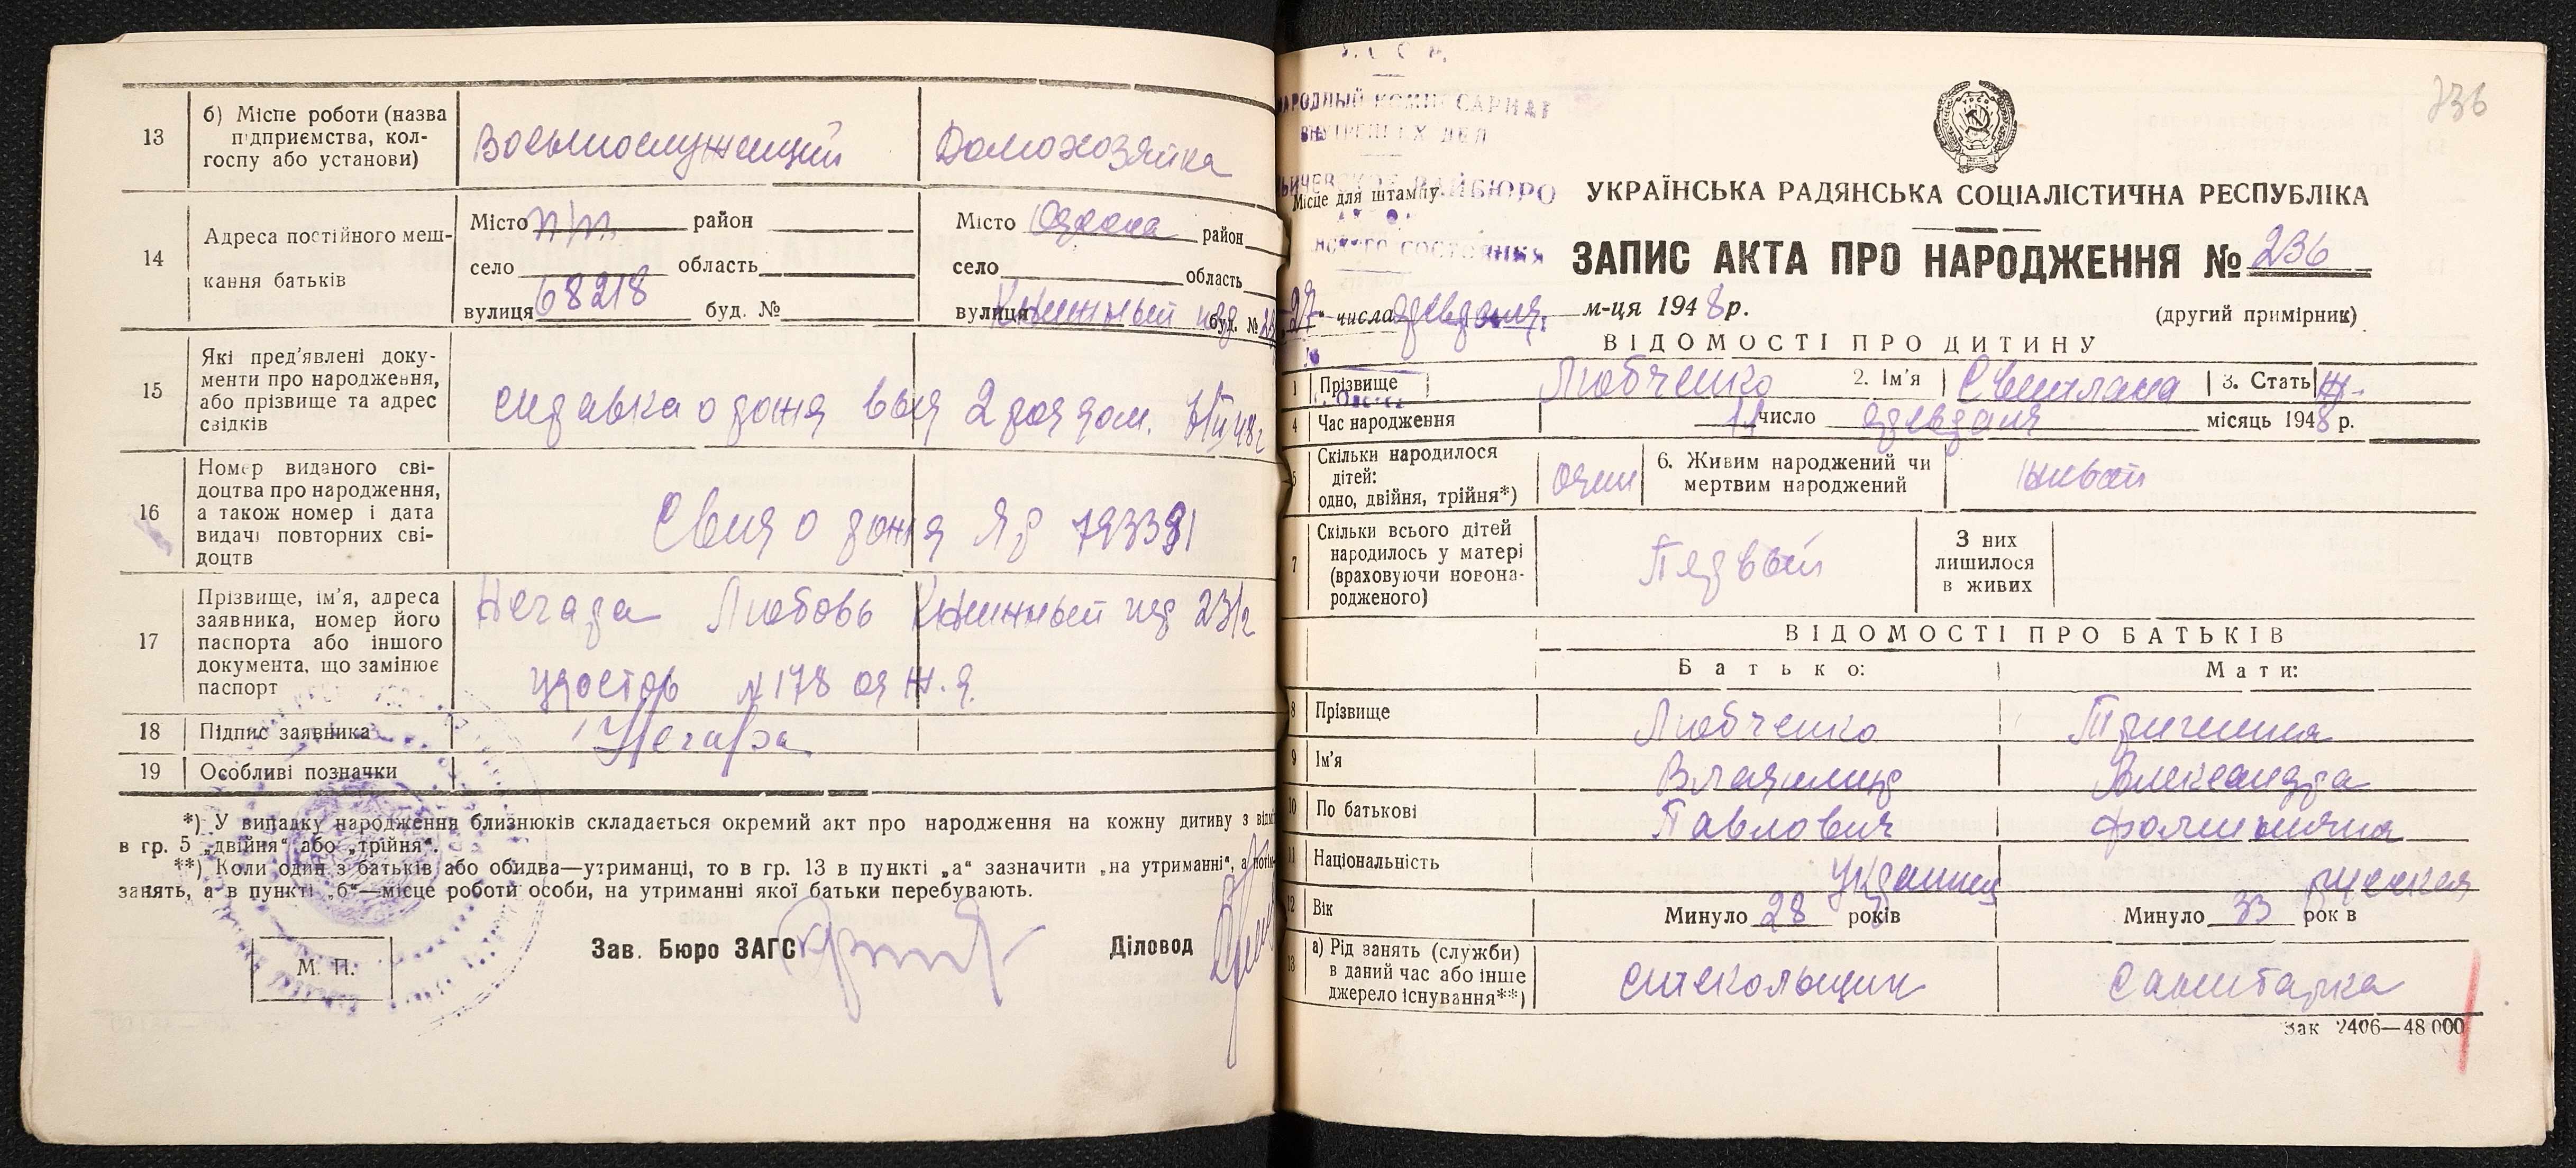 13
б) Місце роботи (назва
підприємства, кол-
госпу або установи)
Военнослужещий
Домохозяйка
14
Адреса постійного меш-
кання батьків
Місто п/п район
село область
вулиця 68218 буд. №
Місто Одесса район
село область
вулиця буд. №
15
Які пред'явлені доку-
менти про народження,
або прізвище та адрес
свідків
справка о рожд выд 2 род дом.
16
Номер виданого сві-
доцтва про народження,
а також номер і дата
видачі повторних сві-
доцтв
Свид о рожд 793391
17
Прізвище, ім'я, адреса
заявника, номер його
паспорта або іншого
документа, що замінює
паспорт
Любовь пер 23/2
удостов №178
18
Підпис заявника
19
Особливі позначки
*) У випадку народження близнюків складається окремий акт про народження на кожну дитину з
в гр. 5 „двійня" або „трійня".
**) Коли один з батьків або обидва—утриманці, то в гр. 13 в пункті „а" зазначити „на утриманні", а
занять, а в пункті „б"—місце роботи особи, на утриманні якої батьки перебувають.
М. П.
Зав. Бюро ЗАГС
Діловод
НАРОДНЫЙ КОМИССАРИАТ
ВНУТРЕННИХ ДЕЛ
РАЙБЮРО
Місце для штампу
СОСТОЯНИЯ
236
УКРАЇНСЬКА РАДЯНСЬКА СОЦІАЛІСТИЧНА РЕСПУБЛІКА
ЗАПИС АКТА ПРО НАРОДЖЕННЯ № 236
„27" числа февраля м-ця 1948 р.
(другий примірник)
ВІДОМОСТІ ПРО ДИТИНУ
1 Прізвище Любченко 2. Ім'я Светлана 3. Стать ж.
4 Час народження 11 число февраля місяць 1948 р.
5 Скільки народилося
дітей:
одно, двійня, трійня*)
один
6. Живим народжений чи
мертвим народжений
живой
7 Скільки всього дітей
народилось у матері
(враховуючи новона-
родженого)
Первый
З них
лишилося
в живих
ВІДОМОСТІ ПРО БАТЬКІВ
Батько:
Мати:
8 Прізвище Любченко
9 Ім'я Владимир Александра
10 По батькові Павлович
11 Національність Украинец русская
12 Вік Минуло 28 років Минуло 33 рок в
13 а) Рід занять (служби)
в даний час або інше
джерело існування**)
стекольщик
санитарка
Зак 2406—48 000